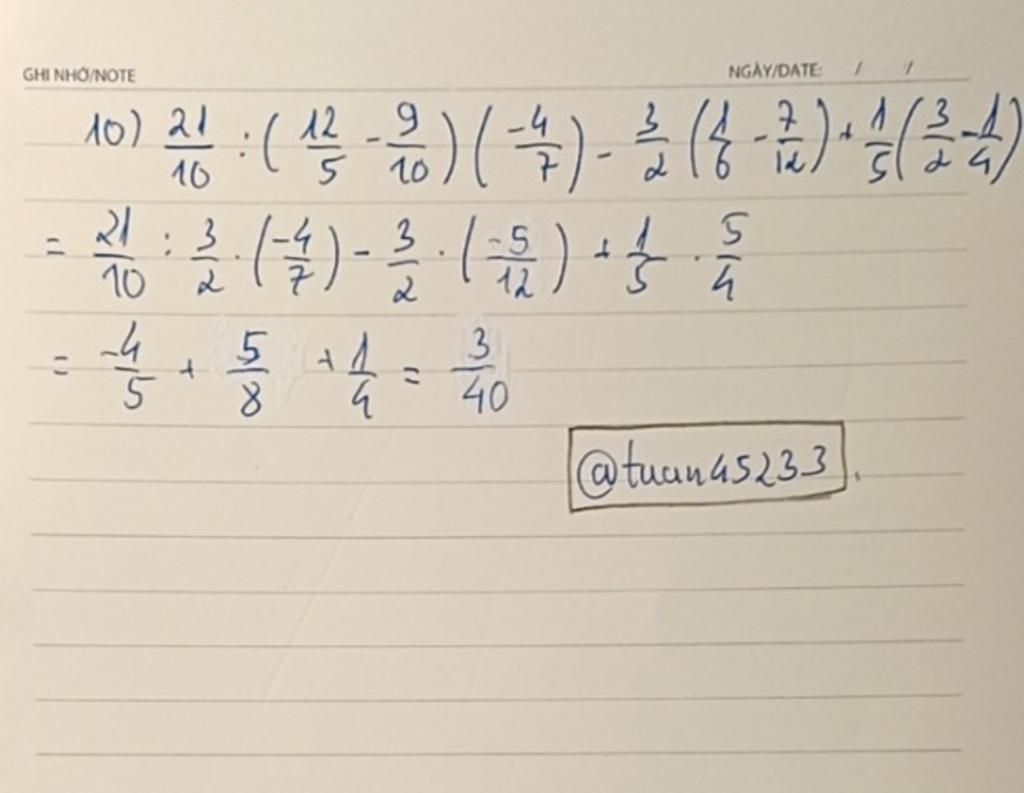 GHI NHỚ/NOTE NGÀY/DATE: / /
10) 21/10 : (12/5 - 9/10) (-4/7) - 3/2 (1/6 - 7/12) + 1/5 (3/2 - 1/4)
= 21/10 : 3/2 . (-4/7) - 3/2 . (-5/12) + 1/5 . 5/4
= -4/5 + 5/8 + 1/4 = 3/40
@tuan45233.